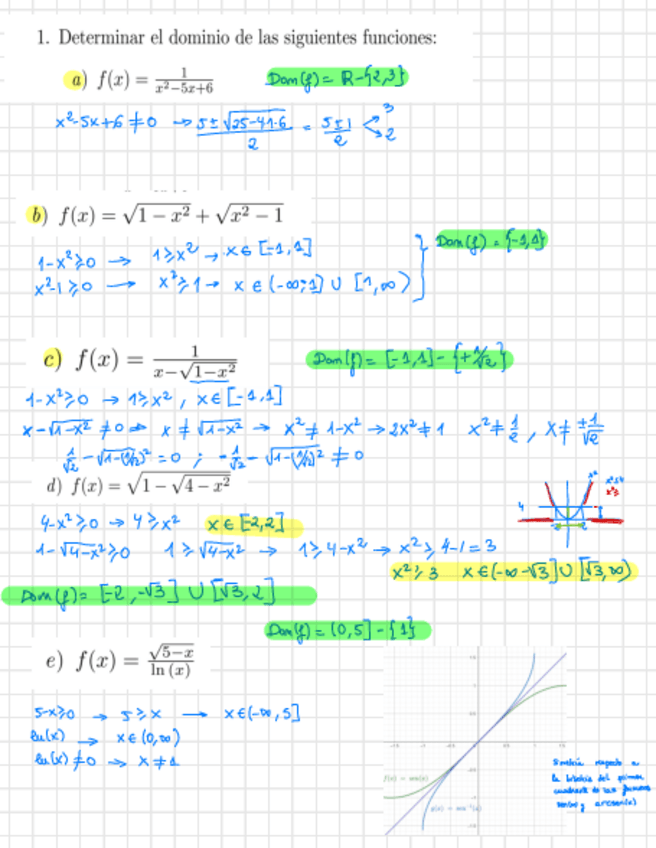 1. Determinar el dominio de las siguientes funciones:
a) f(x) = 1/(x²−5x+6)   Dom(f) = R-{2,3}
x²-5x+6≠0 → (5±√(25-4·1·6))/2 = (5±1)/2 < 3 2
b) f(x) = √(1 − x²) + √(x² − 1)   Dom(f) = {-1,1}
1-x²≥0 → 1≥x² → x∈ [-1,1]
x²-1≥0 → x²≥1 → x ∈ (-∞;1] ∪ [1,∞)
c) f(x) = 1/(x−√(1−x²))   Dom(f) = [-1,1]-{+1/√2}
1-x²≥0 → 1≥x², x∈[-1,1]
x-√(1-x²) ≠0 → x ≠ √(1-x²) → x²≠ 1-x² → 2x²≠1 x²≠1/2, x≠ ±1/√2
1/√2 -√(1-(1/√2)²) =0 ; -1/√2 - √(1-(1/√2)²) ≠ 0
d) f(x) = √(1 − √(4 − x²))
4-x²≥0 → 4≥x² x∈[-2,2]
1-√(4-x²)≥0 1≥√(4-x²) → 1≥4-x² → x²≥4-1=3
x²≥3 x∈(-∞-√3]∪[√3,∞)
Dom(f) = [-2,-√3] ∪ [√3,2]
Dom(f) = (0,5] - {1}
e) f(x) = √(5−x)/ln (x)
5-x≥0 → 5≥x → x∈(-∞,5]
ln(x) → x∈(0,∞)
ln(x)≠0 → x≠1
Simetría respecto a
la bisectriz del primer
cuadrante de las funciones
sen(x) y arcsen(x)